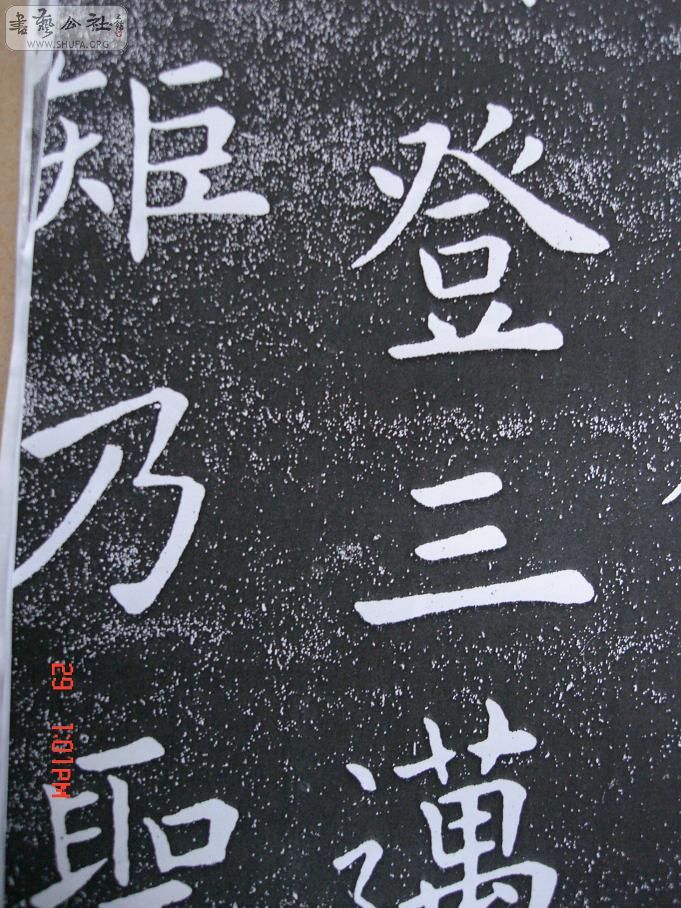 書藝公社
WWW.SHUFA.ORG
登三邁
矩乃聖
29 1:01PM